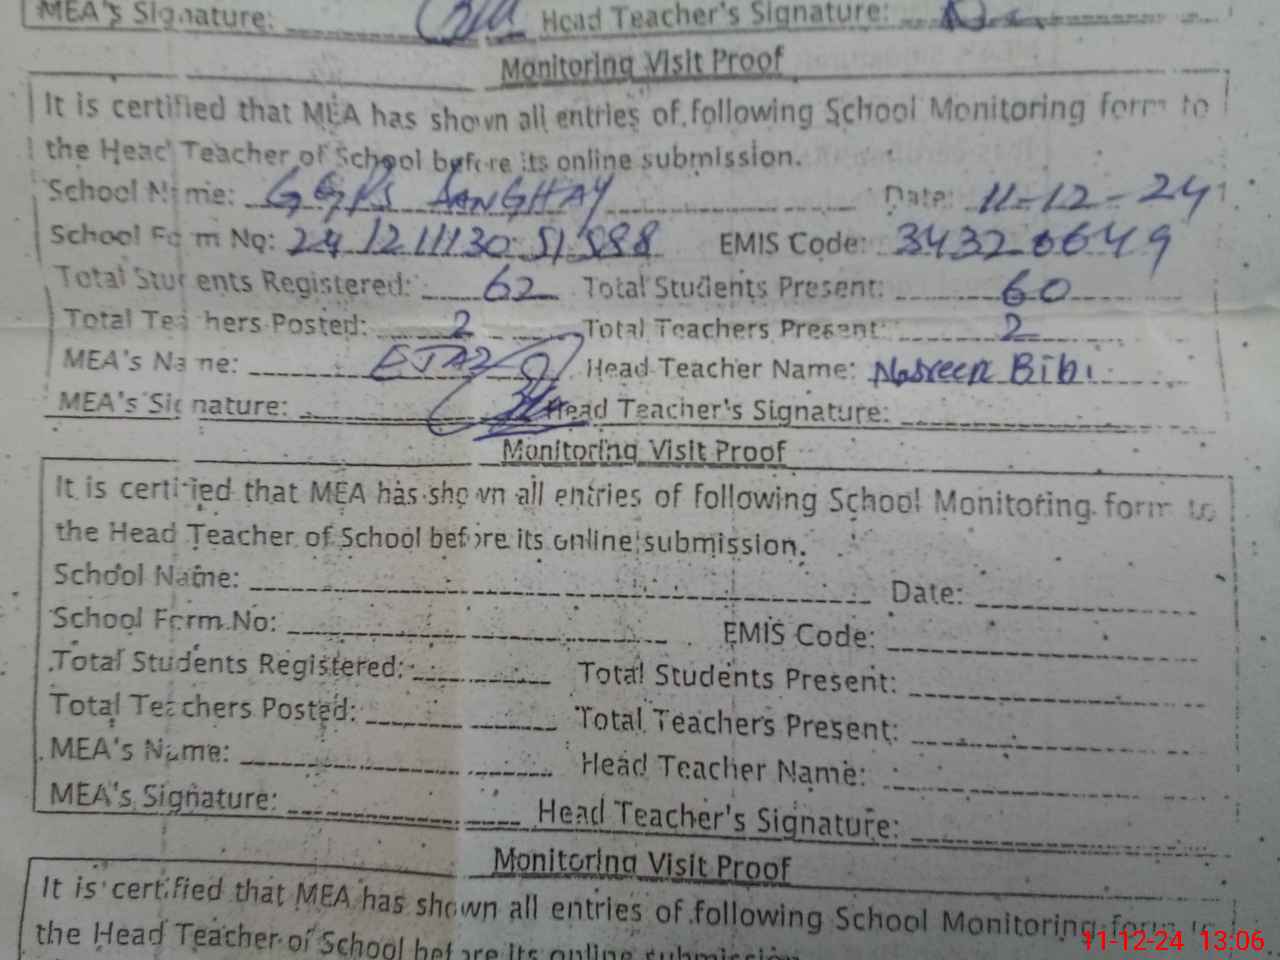 MEA's Signature: Head Teacher's Signature:
Monitoring Visit Proof
It is certified that MEA has shown all entries of following School Monitoring form to
the Head Teacher of School before its online submission.
School Name: GGPS SANGHAY Date: 11-12-24
School Form No: 24121113051588 EMIS Code: 34320649
Total Students Registered: 62 Total Students Present: 60
Total Teachers Posted: 2 Total Teachers Present: 2
MEA's Name: EJAZ Head Teacher Name: Nasreen Bibi
MEA's Signature: Head Teacher's Signature:
Monitoring Visit Proof
It is certified that MEA has shown all entries of following School Monitoring form to
the Head Teacher of School before its online submission.
School Name: Date:
School Form No: EMIS Code:
Total Students Registered: Total Students Present:
Total Teachers Posted: Total Teachers Present:
MEA's Name: Head Teacher Name:
MEA's Signature: Head Teacher's Signature:
Monitoring Visit Proof
It is certified that MEA has shown all entries of following School Monitoring form to
the Head Teacher of School before its online submission.
11-12-24 13:06